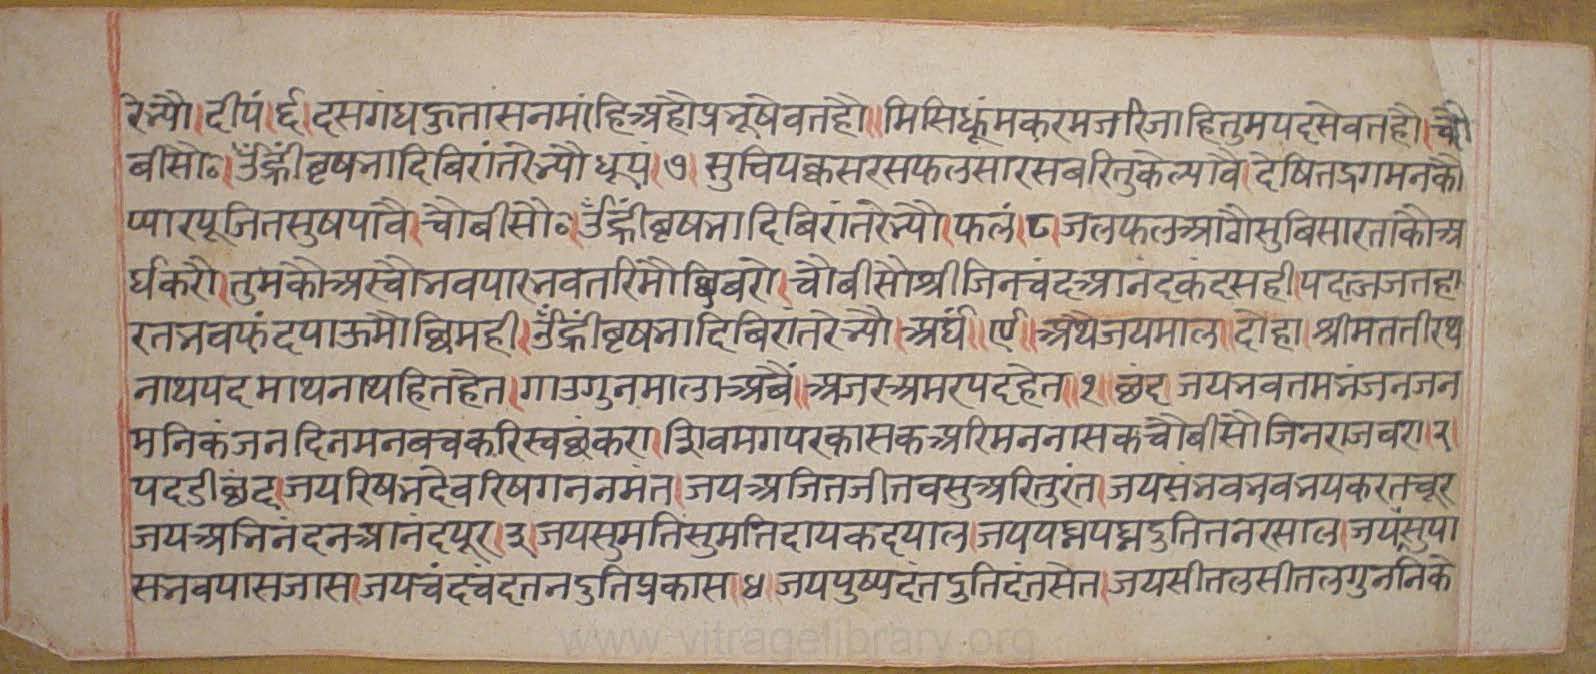 रेभ्यौ। दीपं। ६। दसगंधहुतांसनमांहिअहौप्रभूषेवतहौ॥ मिसिधूंमकरमजरिजाहितुमपदसेवतहौ। चौ
बीसौ०। ॐह्रींबृषभादिबिरांतरेभ्यौधूपं। ७। सुचिपक्कसरसफलसारसबरितुकेल्यावै। देषितद्रगमनकौ
प्यारपूजितसुषपावै। चौबीसौ०। ॐह्रींबृषभादिबिरांतरेभ्यौ। फलं। ८। जलफलआठौसुबिसारतांकौअ
र्घकरौ। तुमकौअरचौभवपारभवतरिमौछिबरो। चौबीसौश्रीजिनचंदआनंदकंदसही। पदजजतहा
रतभवफंदपाऊमौछिमही। ॐह्रींबृषभादिबिरांतरेभ्यौ। अर्घं॥ ९॥ अथैजयमाला। दौहा। श्रीमततीरथ
नाथपदमाथनायहितहेत। गाउगुनमालाअबैं॥ अजरअमरपदहेत॥ १॥ छंद जयभवतमभंजनजन
मनिकंजनदिनमनबचकरिस्वछकरा। शिवमगपरकासकअरिमननासकचौबीसौजिनराजबरा। २।
पदडीछंद। जयरिषभदेवरिषगननमंत। जयअजितजीतवसुअरितुरंत। जयसंभवभवभयकरतचूर
जयअभिनंदनआनंदपूर। ३। जयसुमतिसुमतिदायकदयाल। जयपद्मपद्मदुतितनरसाल। जयसुपा
सभवपासजास। जयचंदचंदतनदुतिप्रकास। ४। जयपुष्पदंतदुतिदंतसेत। जयसीतलसीतलगुननिके
www.vitragelibrary.org